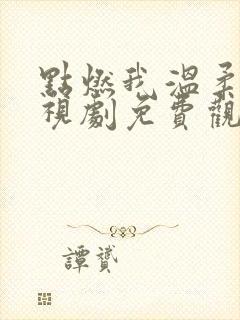 點燃我 溫柔
視劇免費觀
譚贇